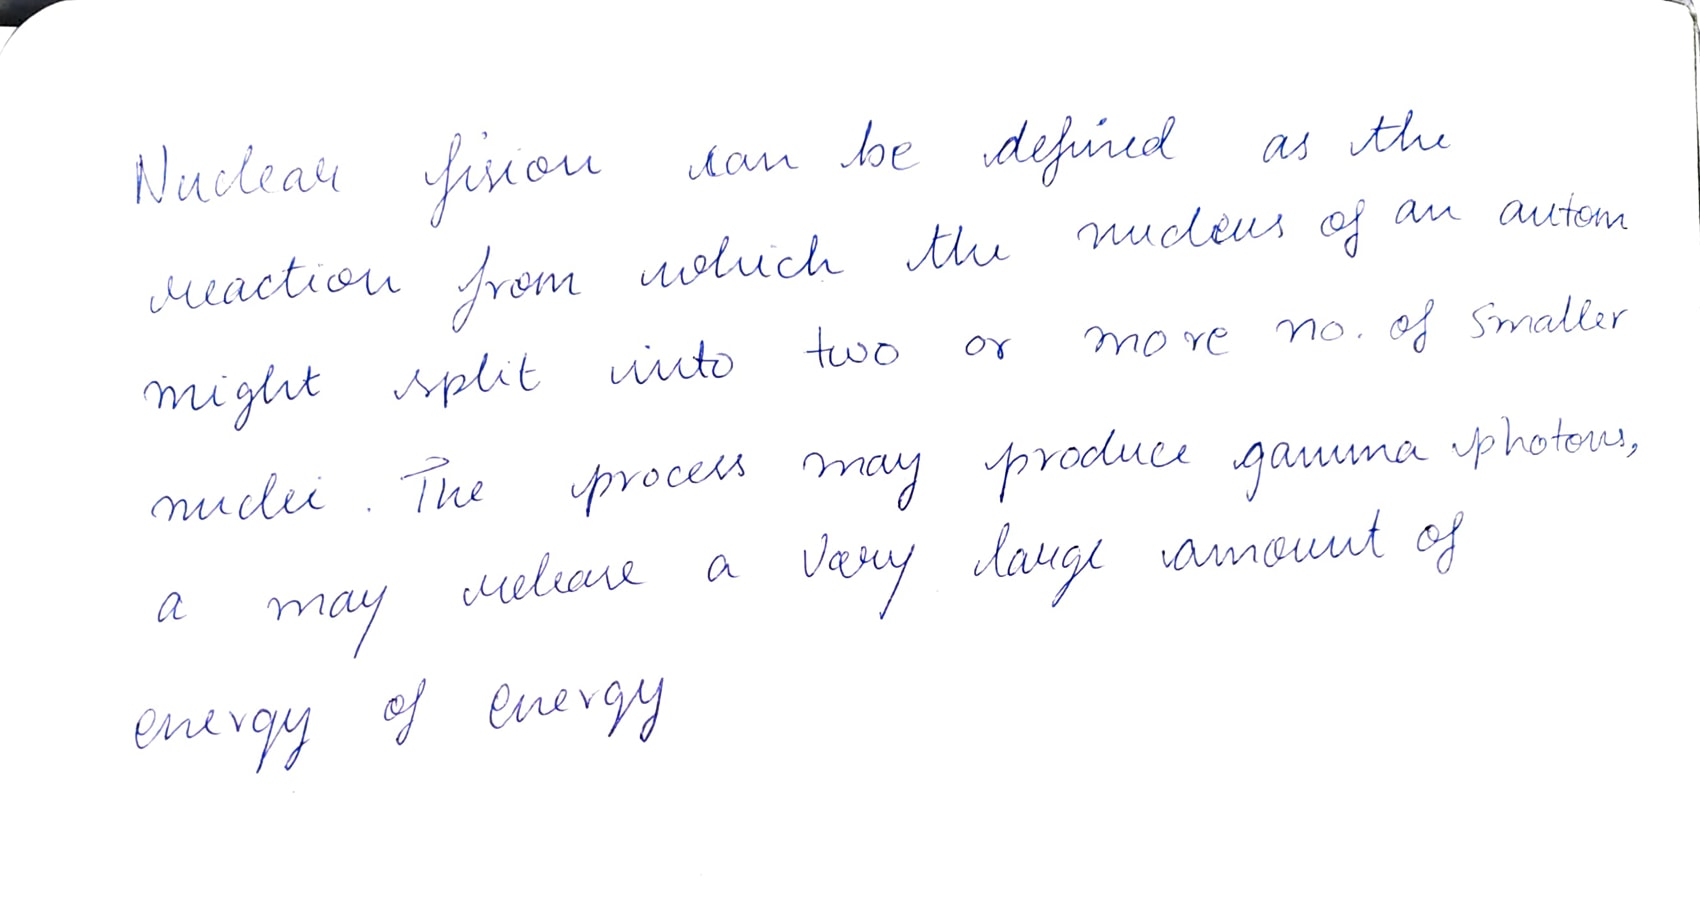 Nuclear fision can be defined as the
reaction from which the nucleus of an autom
might split into two or more no. of smaller
nuclei. The process may produce gamma photons,
a may release a very large amount of
energy of energy